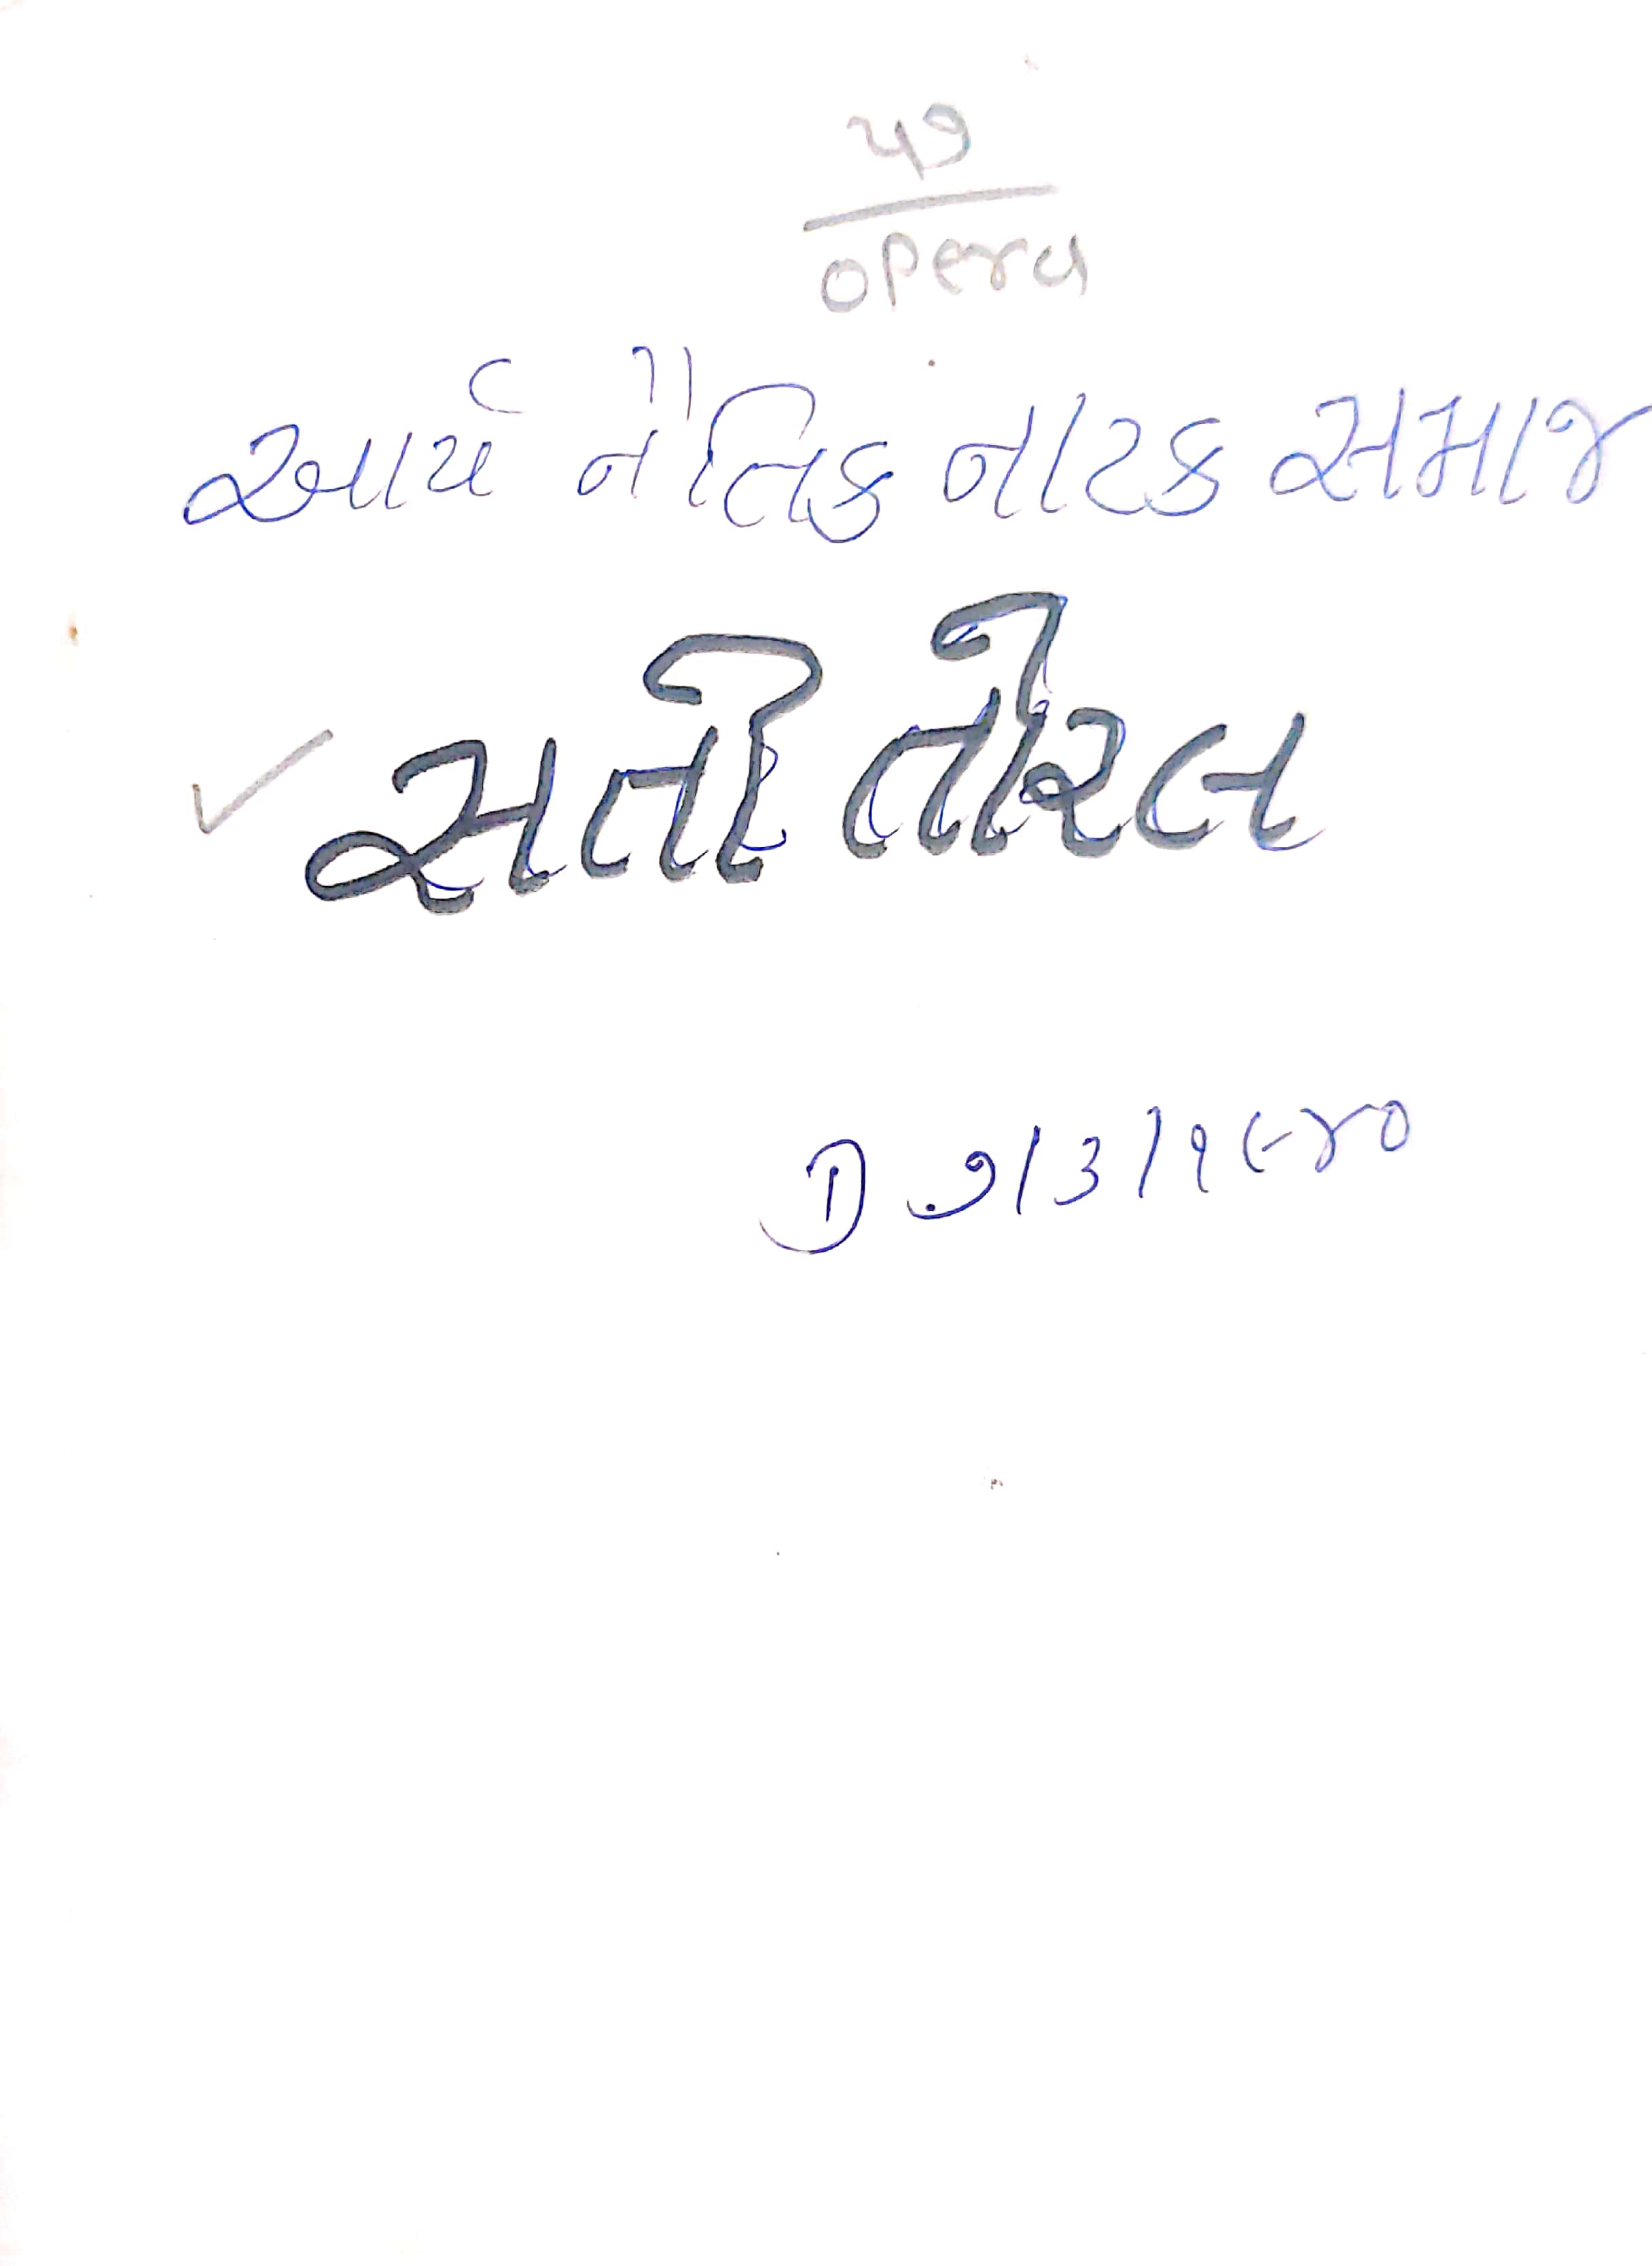 ૫૭
opera
આર્ય નૈતિક નાટક સમાજ
સતી તોરલ
① ૭/૩/૧૯૪૦